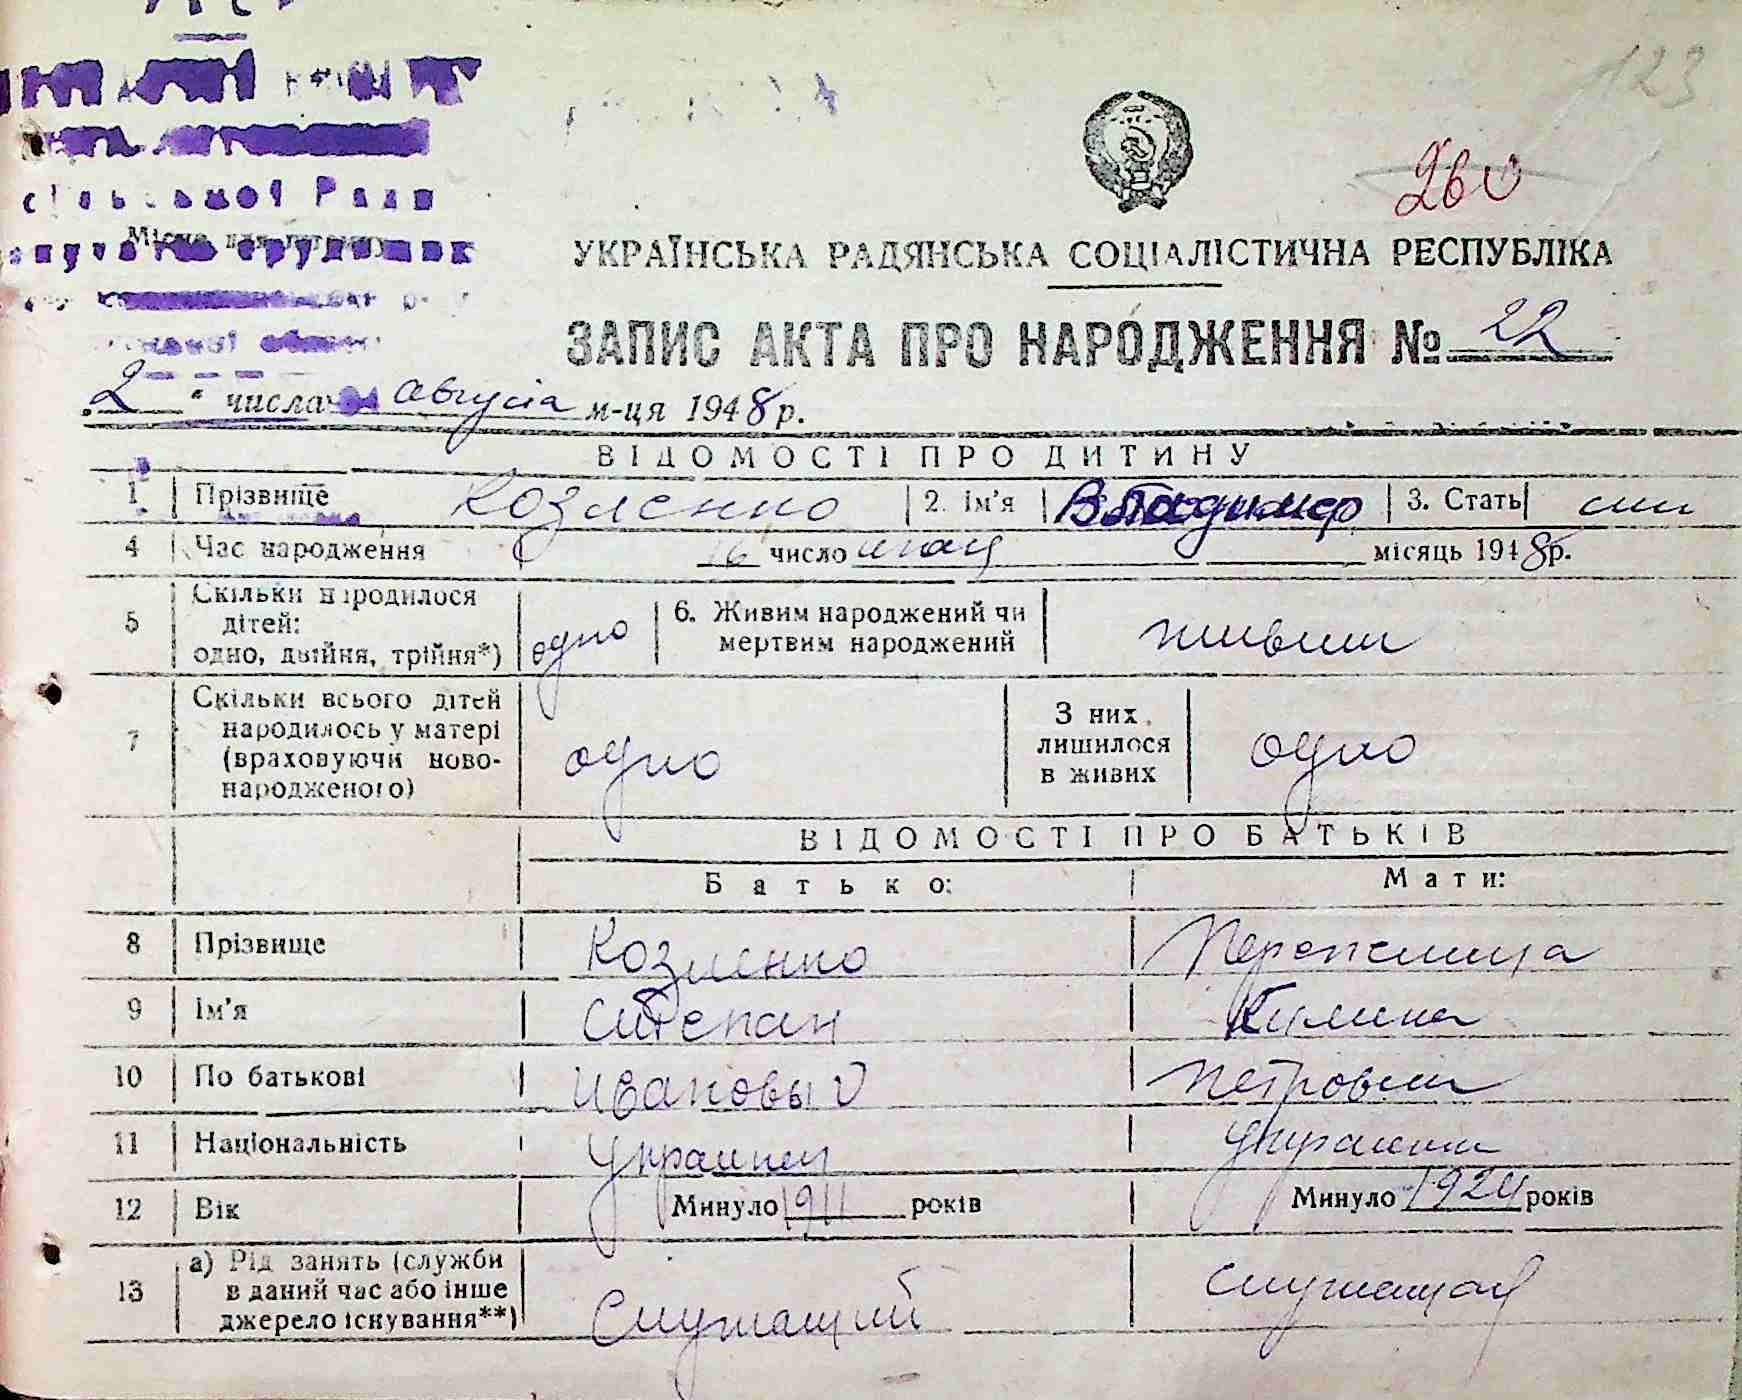 123
260
сільської Ради
Місце для штампу
УКРАЇНСЬКА РАДЯНСЬКА СОЦІАЛІСТИЧНА РЕСПУБЛІКА
ЗАПИС АКТА ПРО НАРОДЖЕННЯ № 22
„2“ числа августа м-ця 1948 р.
ВІДОМОСТІ ПРО ДИТИНУ
1 Прізвище Козленко 2. Ім'я Владимер 3. Стать
4 Час народження 16 число мая місяць 1948 р.
5 Скільки народилося
дітей:
одно, двійня, трійня*) одно 6. Живим народжений чи
мертвим народжений живим
7 Скільки всього дітей
народилось у матері
(враховуючи ново-
народженого) одно З них
лишилося
в живих одно
ВІДОМОСТІ ПРО БАТЬКІВ
Батько: Мати:
8 Прізвище Козленко Перепелица
9 Ім'я Степан Килина
10 По батькові Ивановый Петровна
11 Національність Украинец украинка
12 Вік Минуло 1911 років Минуло 1924 років
13 а) Рід занять (служби
в даний час або інше
джерело існування**) Служащий служащая